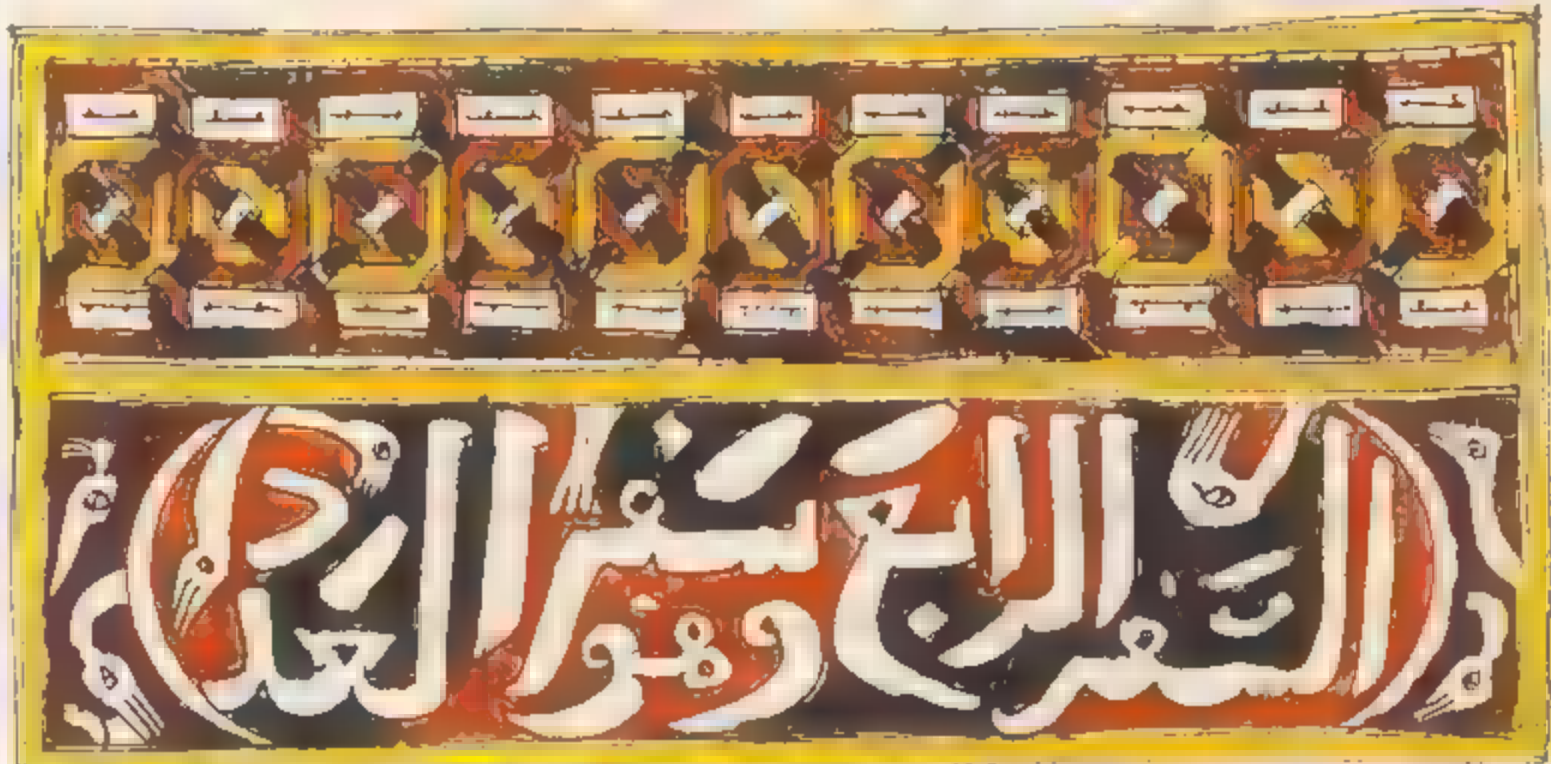 السفر الرابع وهو سفر العدد